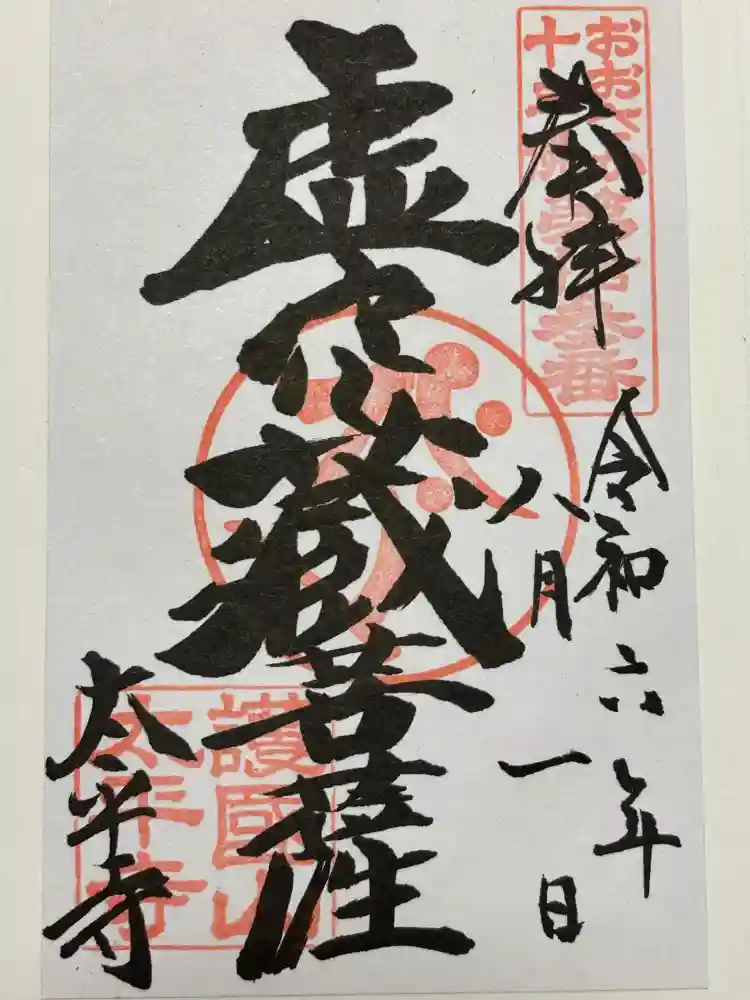 おおさか
十三佛
第拾參番
奉拝
令和六年
八月
一日
虚空藏菩薩
護國山
太平寺
太平寺